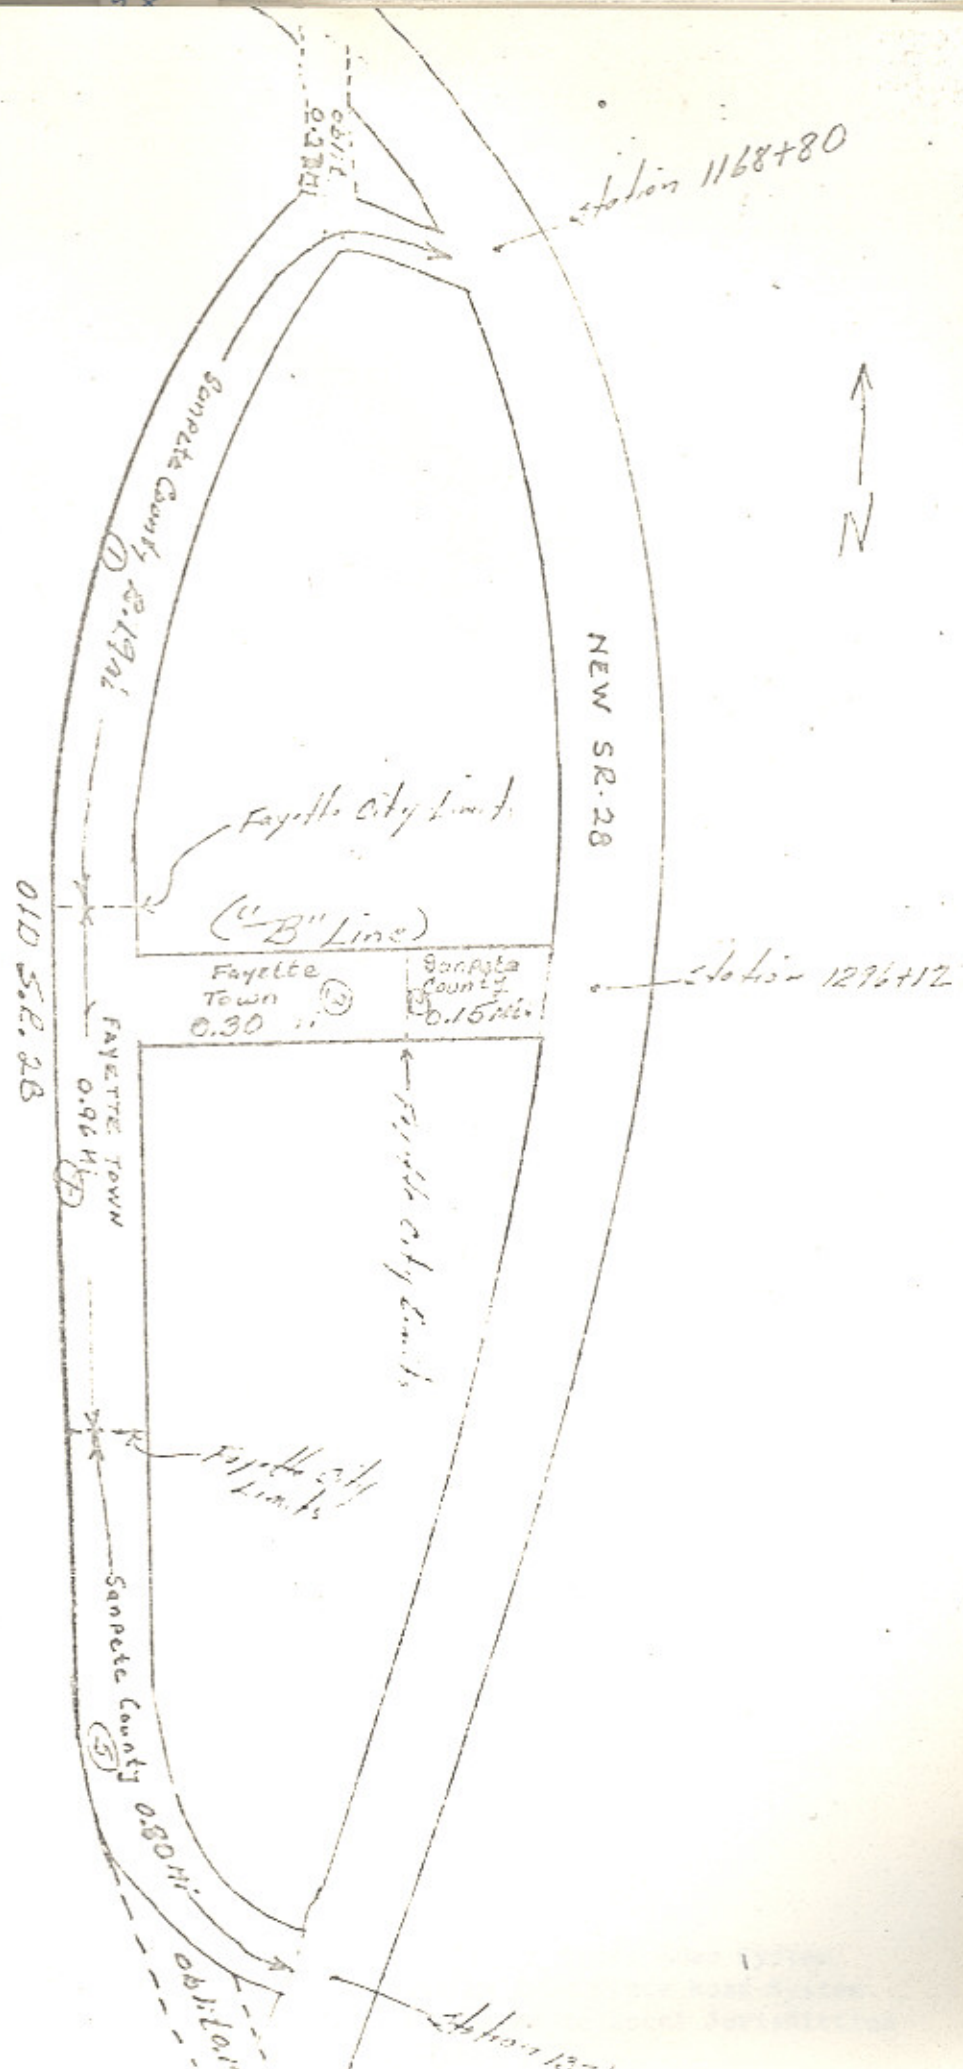 Station 1168+80
oblit.
N
Sanpete County
① 2.19 mi
NEW SR-28
Fayette City Limit
("B" Line)
Fayette
Town
0.30
Sanpete
County
0.15 Mi.
Station 1296+12
OLD S.R. 28
FAYETTE TOWN
0.96 Mi
Fayette City Limits
Fayette City
Limits
Sanpete County 0.80 Mi
⑤
Station